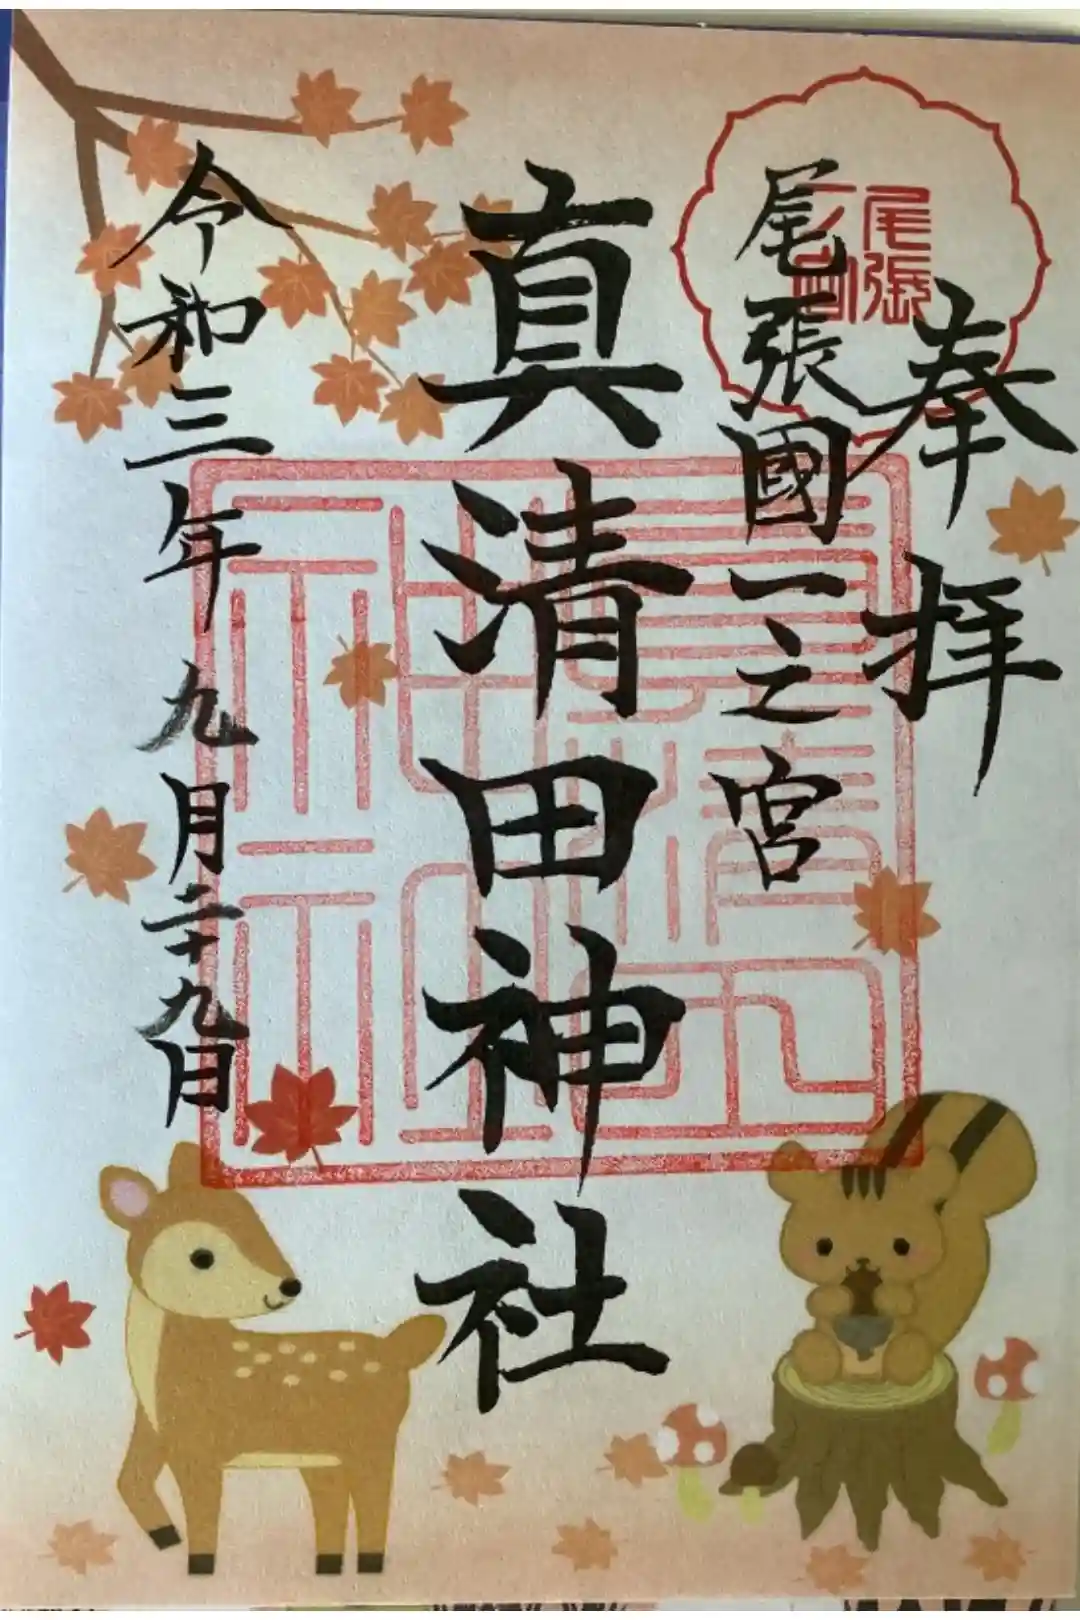 奉拝
尾張國一之宮
尾張
一ノ宮
真清田神社
真清田神社
令和三年九月二十九日